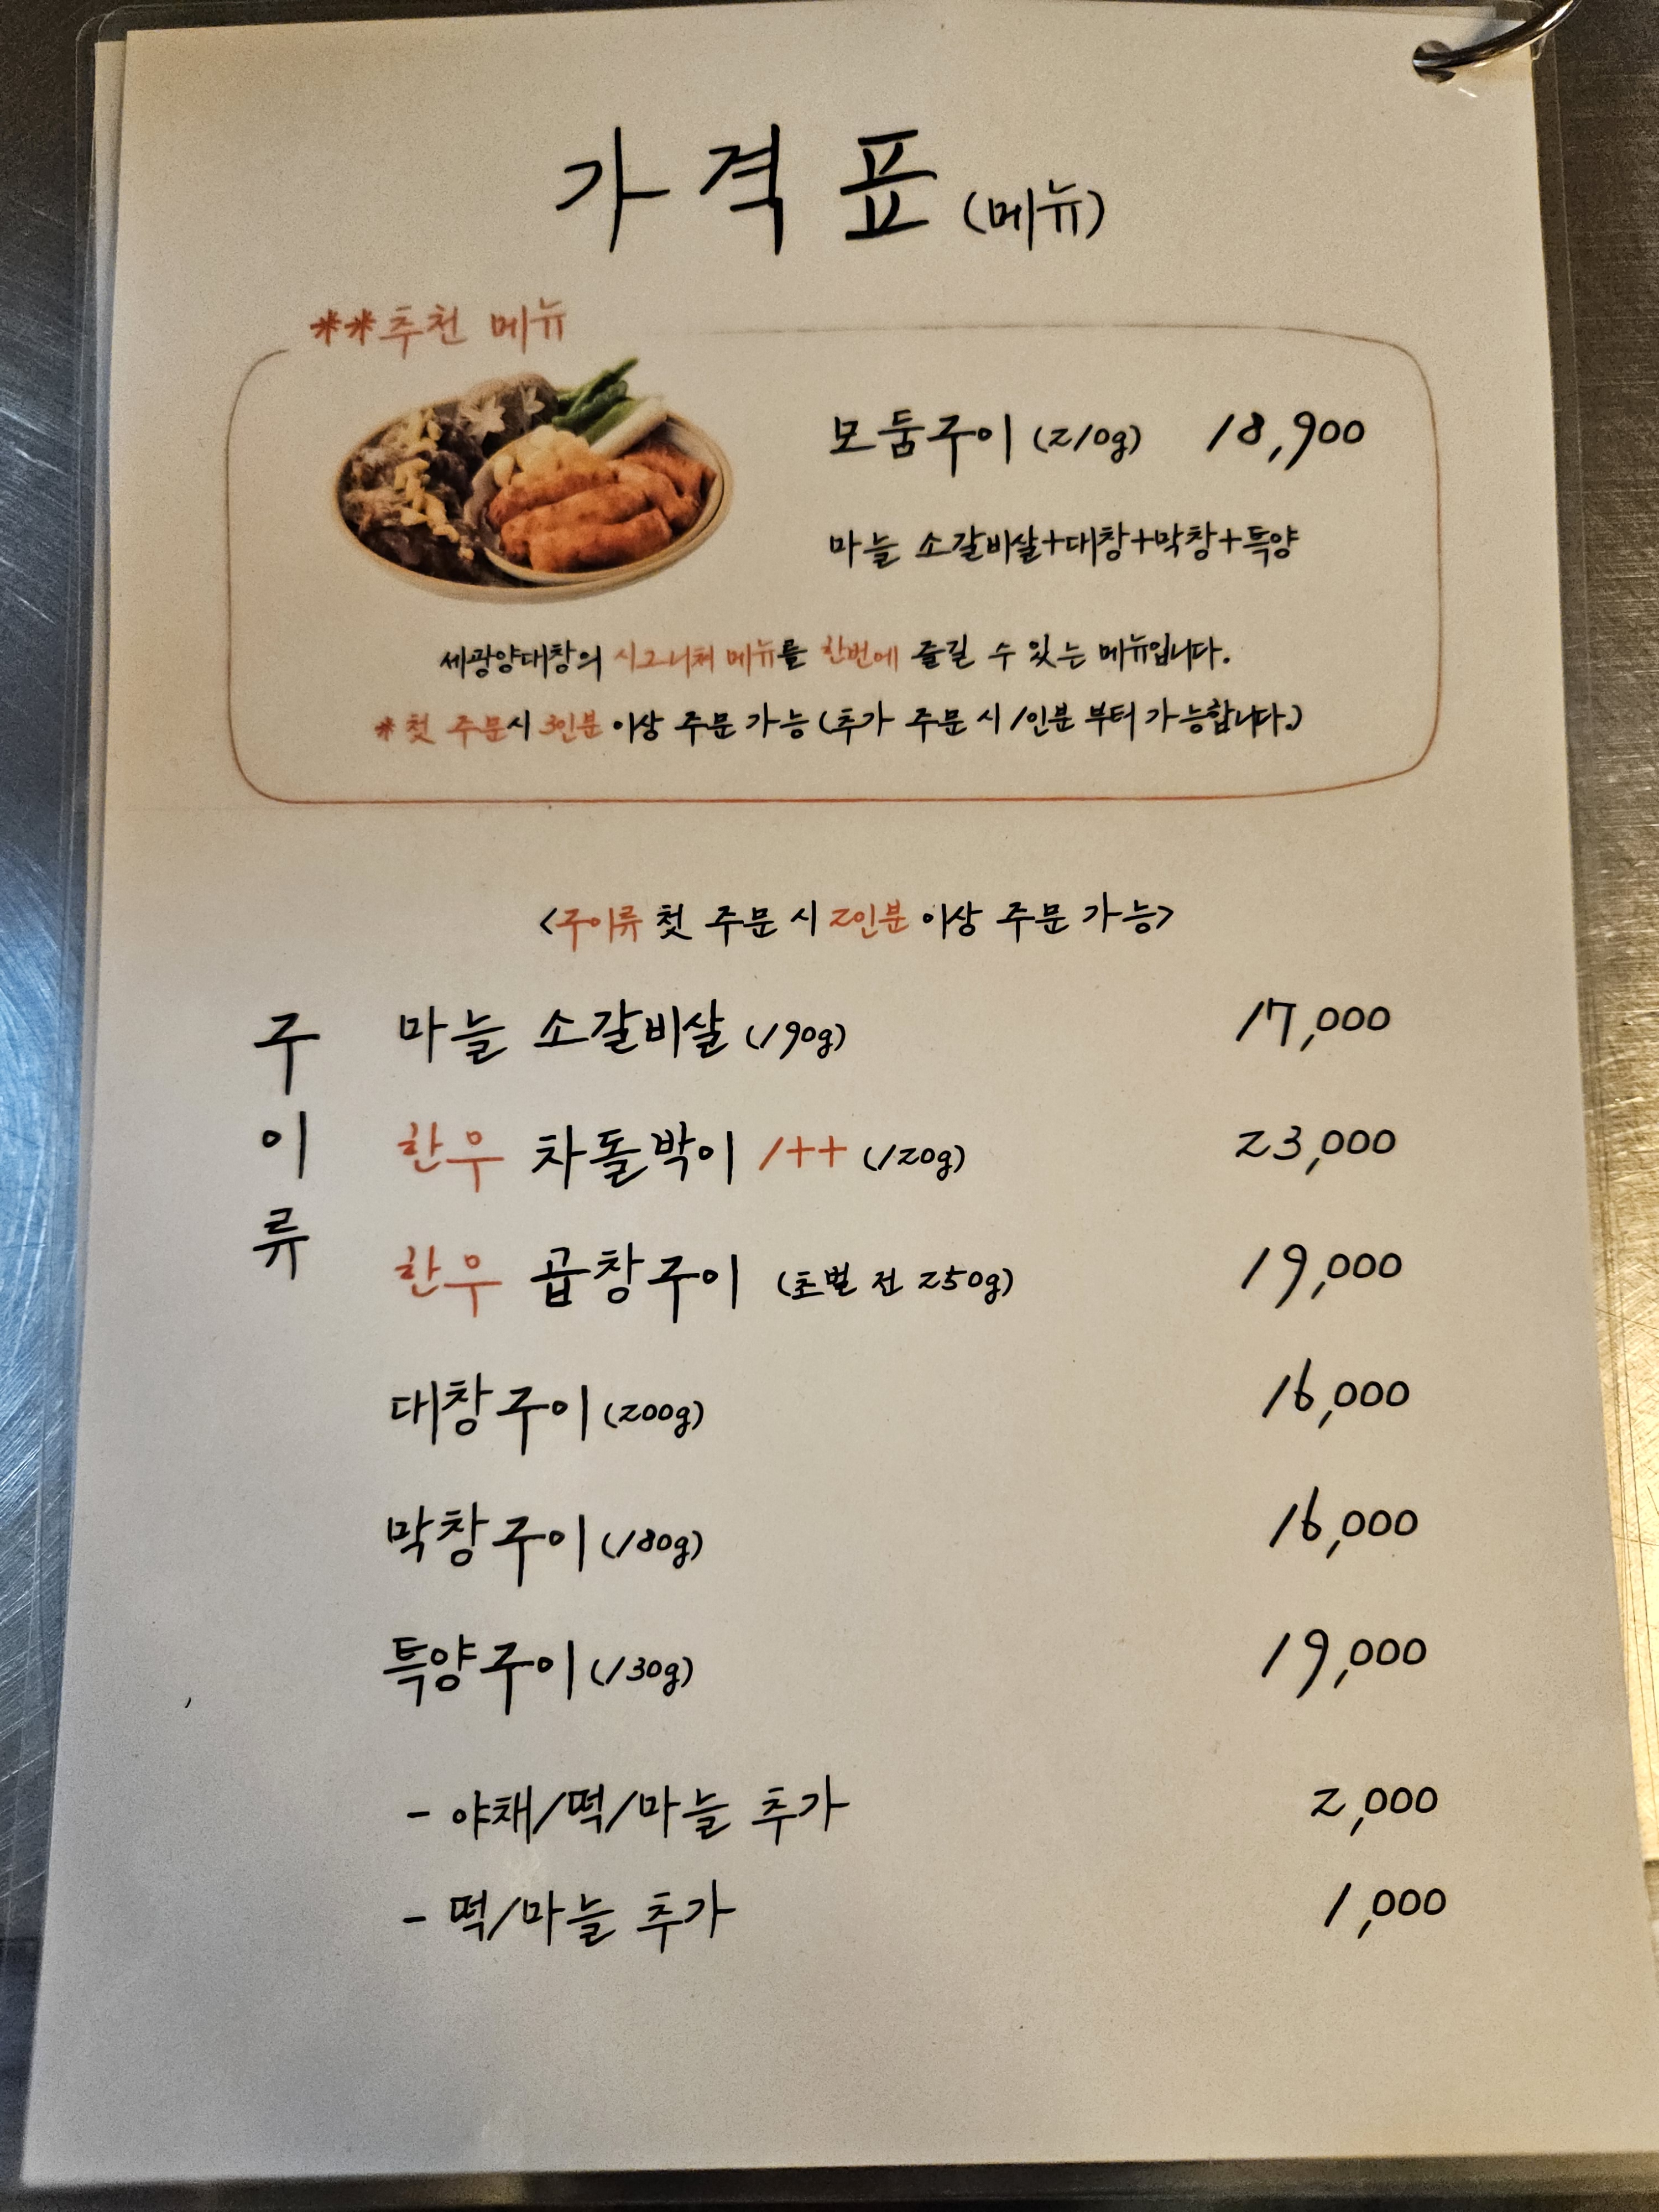 가격표 (메뉴)
**추천 메뉴
모둠구이 (210g) 18,900
마늘 소갈비살+대창+막창+특양
세광양대창의 시그니처 메뉴를 한번에 즐길 수 있는 메뉴입니다.
*첫 주문시 3인분 이상 주문 가능 (추가 주문 시 1인분 부터 가능합니다.)
<구이류 첫 주문 시 2인분 이상 주문 가능>
구이류
마늘 소갈비살 (190g) 17,000
한우 차돌박이 1++ (120g) 23,000
한우 곱창구이 (초벌 전 250g) 19,000
대창구이 (200g) 16,000
막창구이 (180g) 16,000
특양구이 (130g) 19,000
- 야채/떡/마늘 추가 2,000
- 떡/마늘 추가 1,000